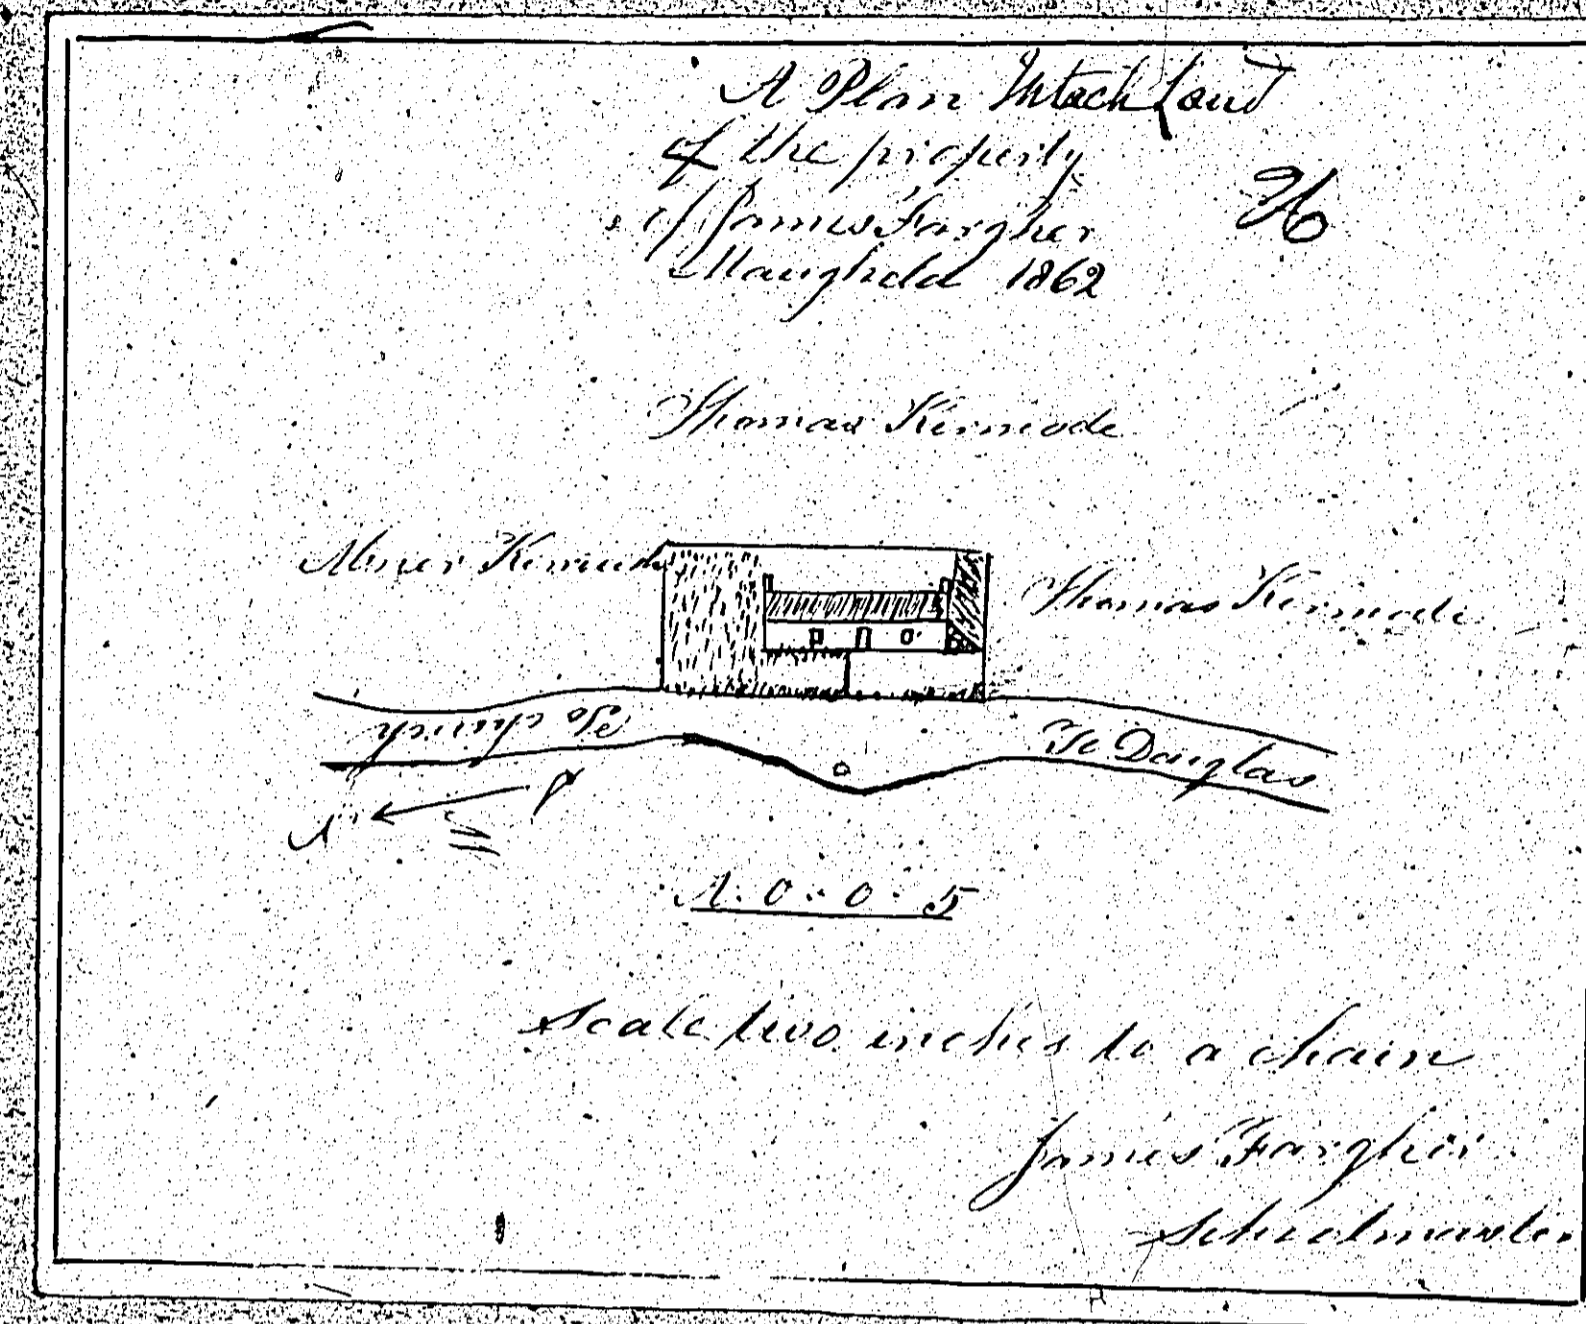 A Plan Intack Land
of the property
of James Fargher
Maughold 1862
Thomas Kermode
Abner Kermode
Thomas Kermode
To church
To Douglas
N
A. 0 : 0 : 5
Scale two inches to a chain
James Fargher
Schoolmaster